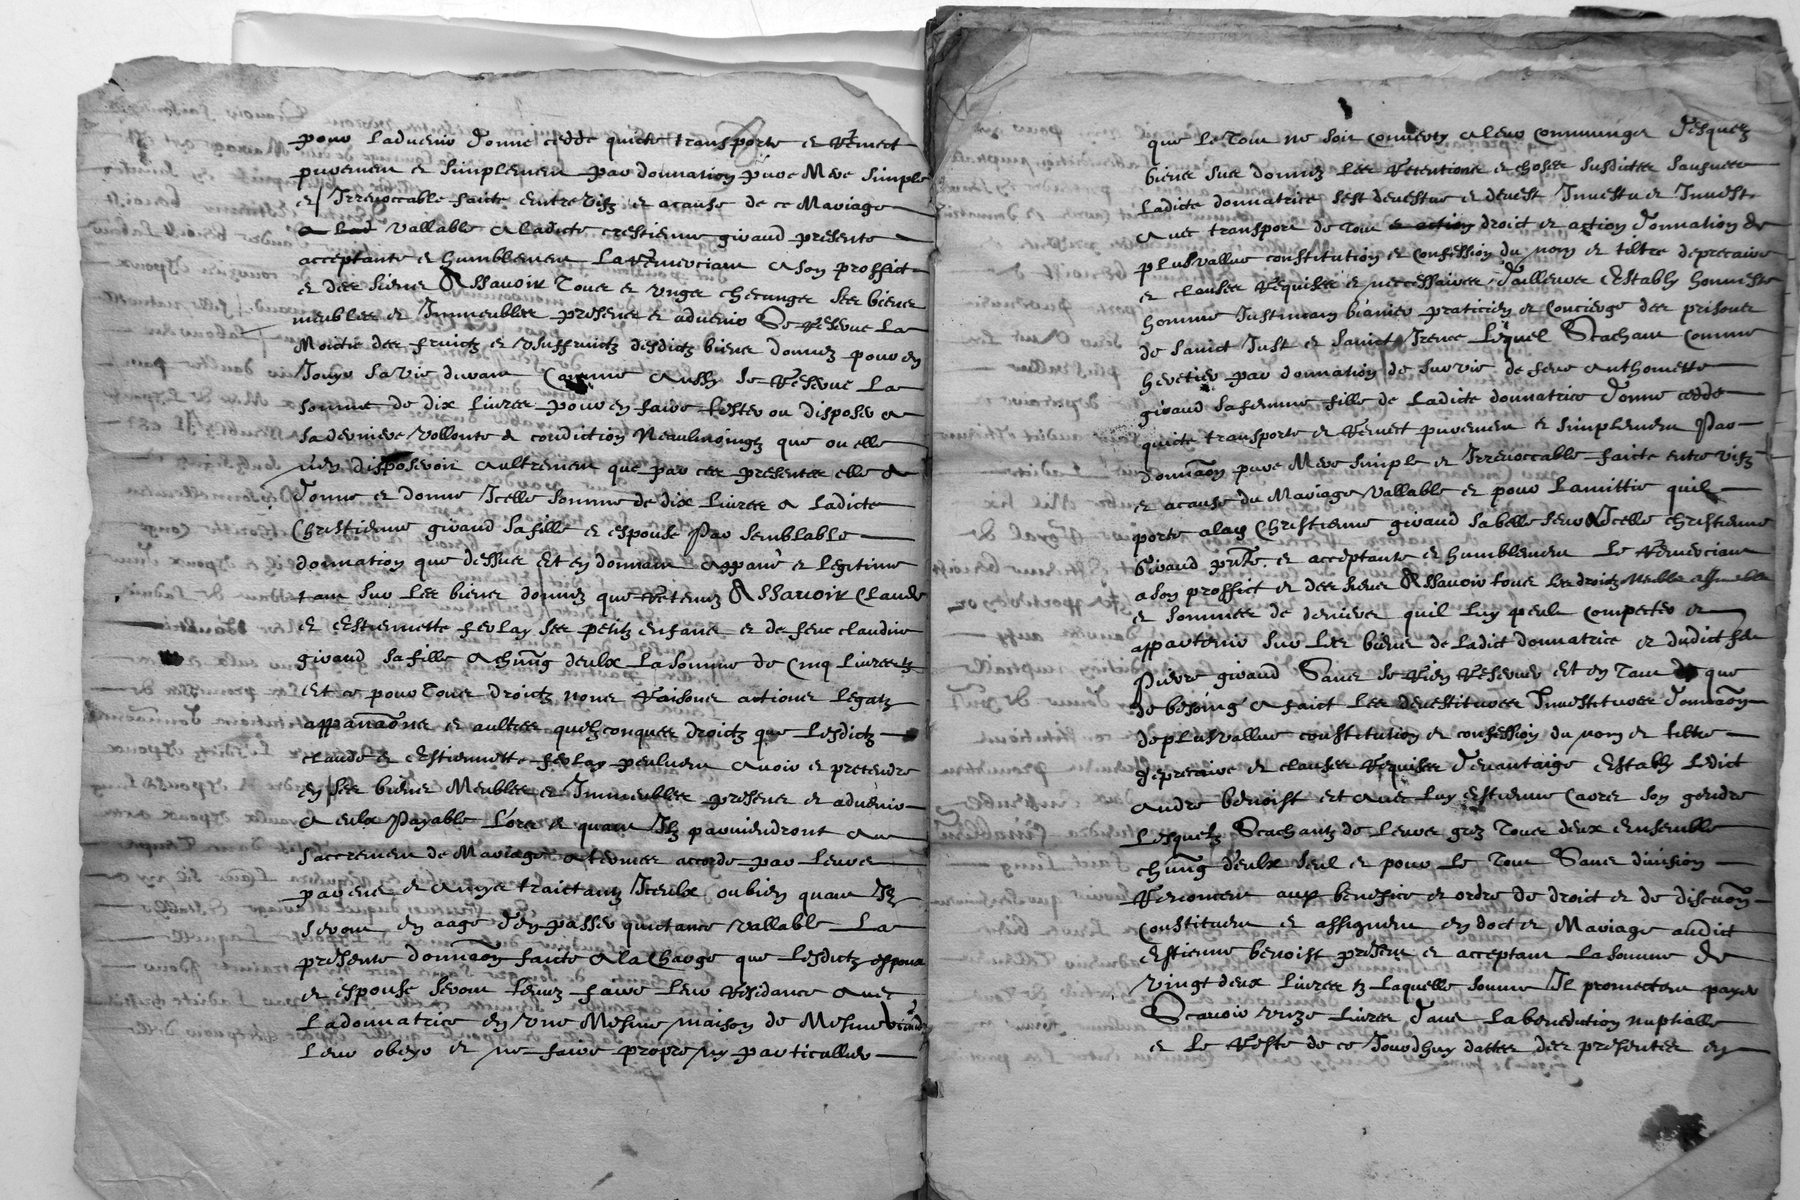 pour ladvenir donne cedde quicte transporte et Remect
purement et simplement par donnation pure Mere simple
et Irrevoccable faicte entre vifz et a cause de ce Mariage
vallable a ladicte crestienne giraud presente
acceptante et humblement la Remerciant a son proffict
et des siens Assavoir Tous et ungs chescungs ses biens
meubles et Immeubles presens et advenir Se Reserve La
Moictie des fruictz et usuffruictz desdictz biens donnez pour en
Jouyr sa vie durant Comme Aussy se Reserve La
somme de dix livres pour en faire tester ou disposer a
sa derniere vollonte & condiction Neaulmoingz que ou elle
n'en disposeroit aultrement que par ces presentes elle a
donne et donne Icelle somme de dix livres a Ladicte
Christienne giraud sa fille et espouse Par semblable
donnation que dessus Et en donnant appane et legitime
tant sur les biens donnez que Retenuz Assavoir Claude
et Estiennette ferlay ses petitz enfans et de feue claudine
giraud sa fille a chung deulx La somme de Cinq Livres tz
Et ce pour Tous droictz noms Raisons actions legatz
appanaōns et aultres quelzconques droictz que Lesdictz
claude et Estiennette ferlay peulvent avoir et pretendre
en ses biens Meubles et Immeubles presens et advenir
A eulx Payable Lors et quant Ilz parviendront au
saccrement de Mariage a termes accorde par leurs
parens et amys traictantz Iceulx ou bien quant Ilz
seront en aage den passer quictance vallable La
presente donnaōn faicte a la Charge que Lesdictz espoux
et espouse seront tenuz faire leur Residance avec
Ladonnatrice en une Mesme maison de Mesme
Leur obeyr et ne faire propre ny particullier
que Le Tout ne soit Converty a leur Communge desquelz
biens sus donnez les Retentions et choses susdictes saufvees
Ladicte donnatrice sest devestue et devest Investu et Invest
avec transport de Tout droict et action donnation de
plusvallue constitution et confession du nom et tiltre de precaire
et clauses Requises et necessaires, dailleurs Estably honneste
homme Justinian praticien et Concierge des prisons
de Sainct Just et Sainct Irenee Lequel Scachant Comme
heretier par donnation de survie de feue Anthoinette
giraud sa femme fille de Ladicte donnatrice donne cedde
quicte transporte et Remect purement et simplement Par
donnaōn pure Mere simple et Irrevoccable faicte entre vifz
et a cause du Mariage vallable et pour Lamittie quil
porte a lad Christienne giraud sa belle seur Icelle christienne
Giraud pnte et acceptante et humblement Le Remerciant
a son proffict et des siens Assavoir tous les droictz Meubles
et sommes de deniers quil luy peult competer et
appartenir sur Les biens de Ladict donnatrice et dudict feu
Pierre giraud Sans se Rien Reserver Et en Tant que
de besoing a faict Les devestitures Investitures donnaōn
de plusvallue constitution et confession du nom et tiltre
de precaire et clauses Requises davantaige Estably Ledict
Andre benoist et avec luy Estienne son gendre
Lesquelz Scachantz de Leurs grez Tous deux Ensemble
chung deulx seul et pour Le Tout Sans division
Renoncent aux benefice et ordre de droict et de discution
Constituent et assignent en doct et Mariage audict
Estienne benoist present et acceptant La somme de
vingt deux Livres tz Laquelle somme Ilz promectent payer
Scavoir unze Livres dans La benediction nuptialle
et Le Reste de ce Jourdhuy dattes des presentes en